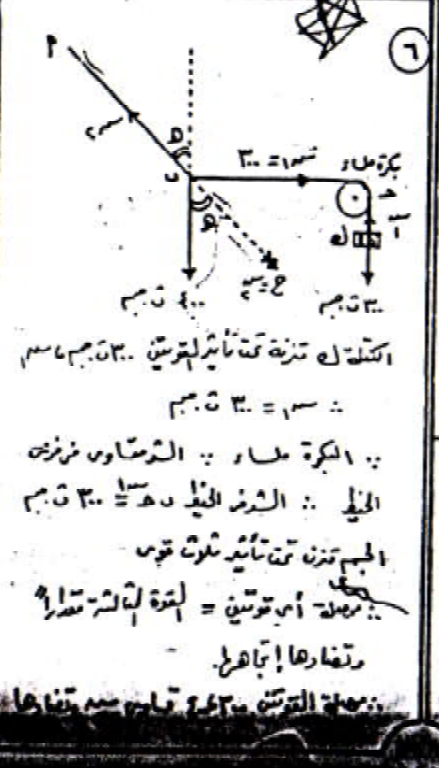 ٦
٢
هـ
س٢
س١ = ٣٠٠
بكرة ملساء
حـ
د
هـ
ك
ع = س٢
٤٠٠ ث جم
٣٠٠ ث جم
الكتلة ك متزنة تحت تأثير القوتين ٣٠٠ ث جم ، س١
∴ س١ = ٣٠٠ ث جم
∵ البكرة ملساء ∴ الشد متساوى فى فرعى
الخيط ∴ الشد فى الخيط د حـ = س١ = ٣٠٠ ث جم
الجسم متزن تحت تأثير ثلاث قوى
∴ محصلة أى قوتين = القوة الثالثة مقدارا
وتضادها إتجاهها.
∴ محصلة القوتين ٣٠٠ ، ٤٠٠ تساوى س٢ وتضادها